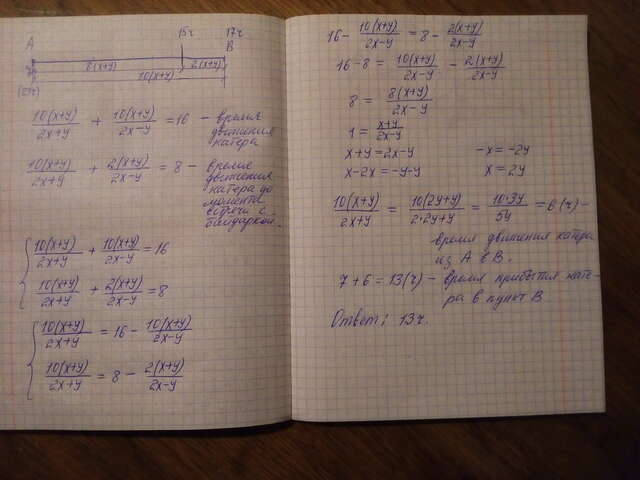 15ч 17ч
А В
8(x+y) 2(x+y)
10(x+y)
(7ч)
10(x+y)/2x+y + 10(x+y)/2x-y = 10 - время
движения
катера
10(x+y)/2x+y + 2(x+y)/2x-y = 8 - время
движения
катера до
момента
встречи с
байдаркой.
{ 10(x+y)/2x+y + 10(x+y)/2x-y = 16
10(x+y)/2x+y + 2(x+y)/2x-y = 8
{ 10(x+y)/2x+y = 16 - 10(x+y)/2x-y
10(x+y)/2x+y = 8 - 2(x+y)/2x-y
16 - 10(x+y)/2x-y = 8 - 2(x+y)/2x-y
16-8 = 10(x+y)/2x-y - 2(x+y)/2x-y
8 = 8(x+y)/2x-y
1 = x+y/2x-y
x+y = 2x-y -x = -2y
x-2x = -y-y x = 2y
10(x+y)/2x+y = 10(2y+y)/2·2y+y = 10·3y/5y = 6(ч) -
время движения катера
из А в В.
7+6 = 13(ч) - время прибытия кате-
ра в пункт В
Ответ: 13ч.